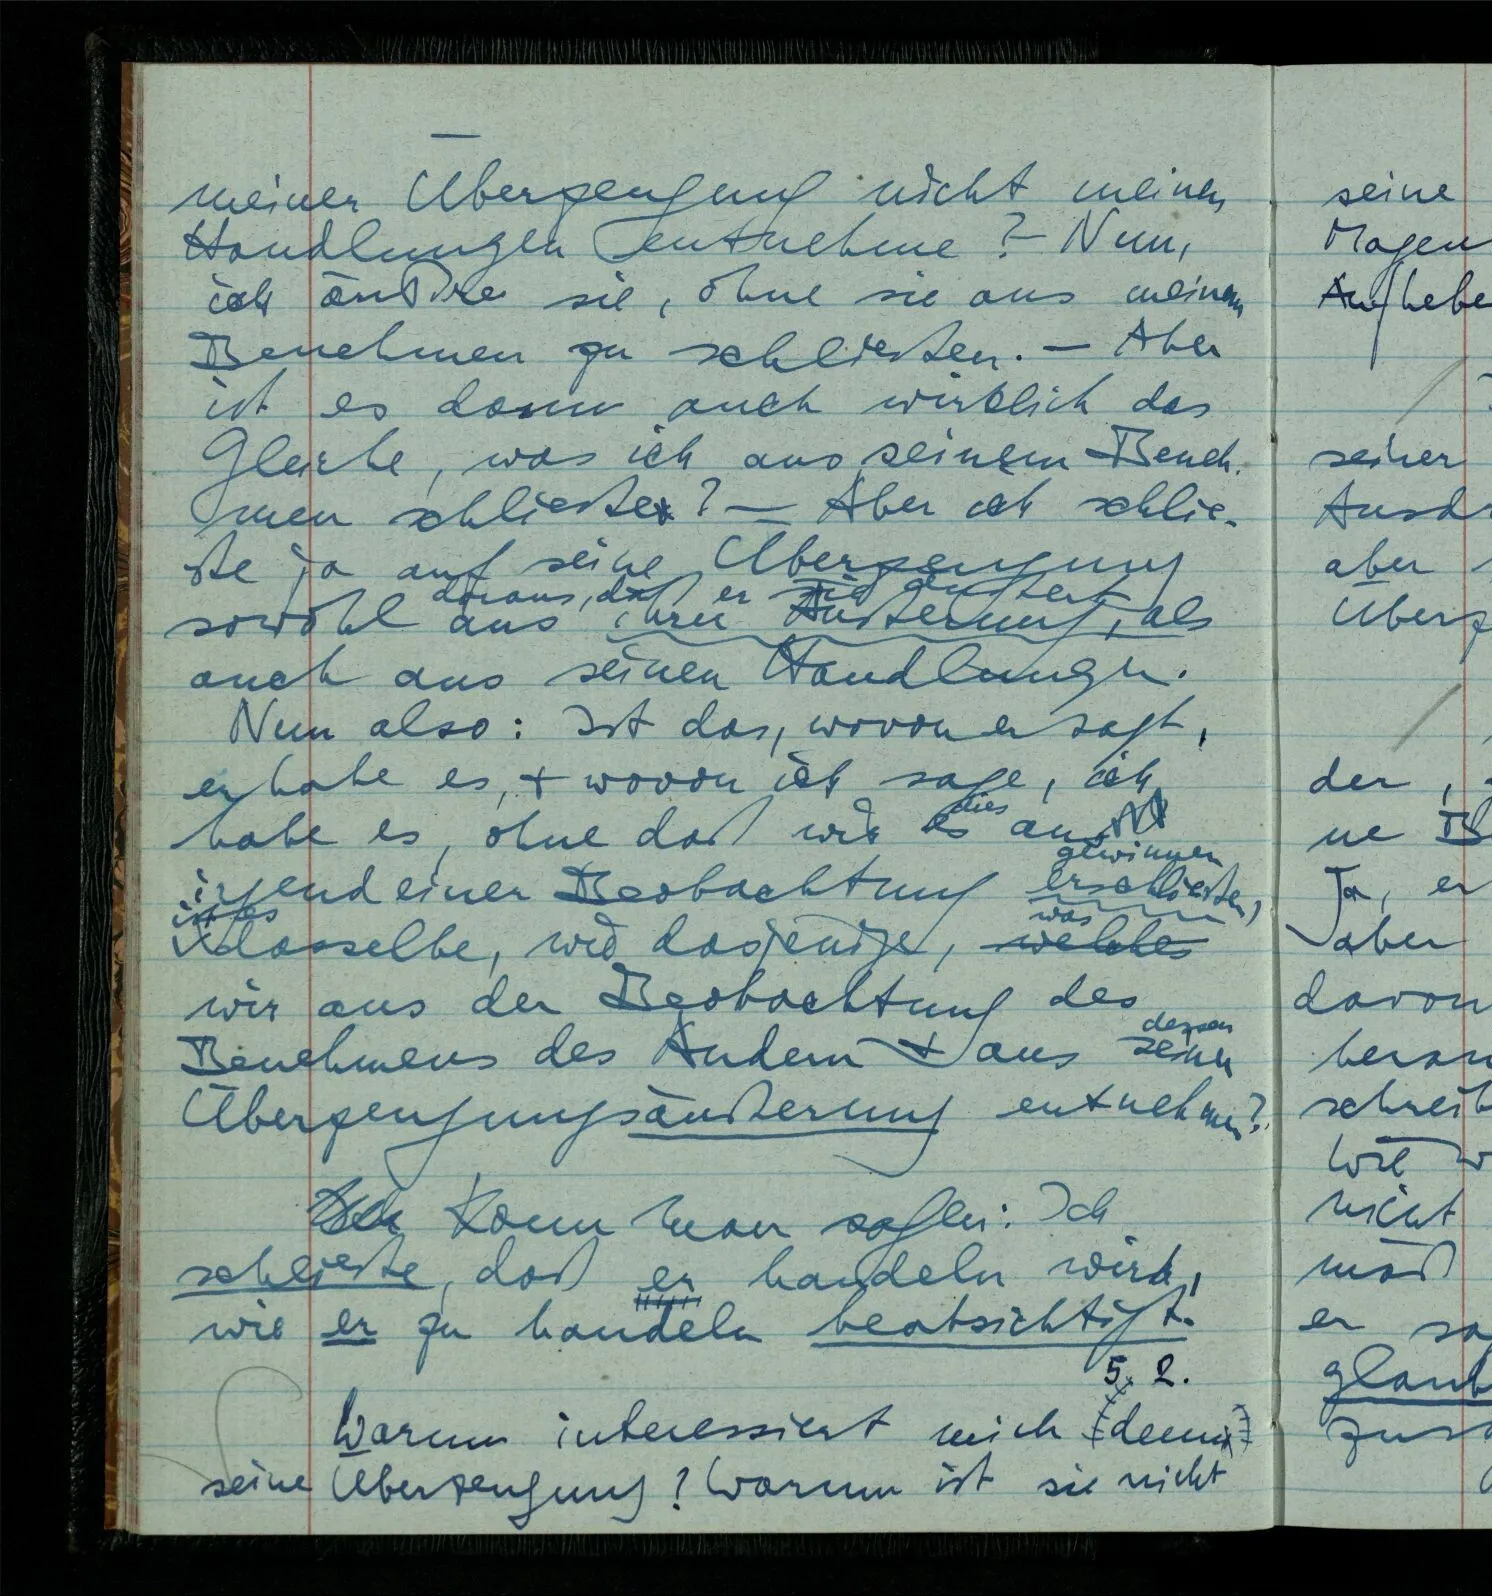 meiner Überzeugung nicht meinen
Handlungen entnehme? – Nun,
ich äußre sie, ohne sie aus meinem
Benehmen zu schließen. – Aber
ist es denn auch wirklich das
Gleiche, was ich aus seinem Beneh-
men schließe? – Aber ich schlie-
ße ja auf seine Überzeugung
daraus, daß er sie äußert
sowohl aus ihrer Äußerung, als
auch aus seinen Handlungen.
Nun also: Ist das, wovon er sagt,
er habe es, + wovon ich sage, ich
habe es, ohne daß wir es dies aus
irgend einer Beobachtung erschließen, gewinnen
ist es
dasselbe, wie dasjenige, welches was
wir aus der Beobachtung des
Benehmens des Andern + aus seiner dessen
Überzeugungsäußerung entnehmen?
Ich Kann man sagen: Ich
schließe, daß er handeln wird,
wie er zu handeln beabsichtigt.
5. 2.
Warum interessiert mich denn
seine Überzeugung? Warum ist sie nicht
seine
Magen
Aufhebe
seiner
Ausdr
aber
Überz
der,
ne B
Ja, er
aber
davon
heraus
schreib
Wie w
nicht
muß
er sa
glaub